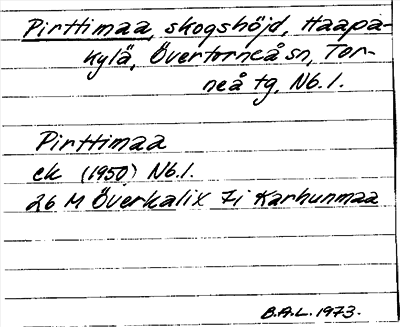 Pirttimaa, skogshöjd, Haapa-
kylä, Övertorneå sn, Tor-
neå tg, Nb.l.
Pirttimaa
ek (1950) Nb.l.
26 M Överkalix 7i Karhunmaa
B.A.L. 1973.